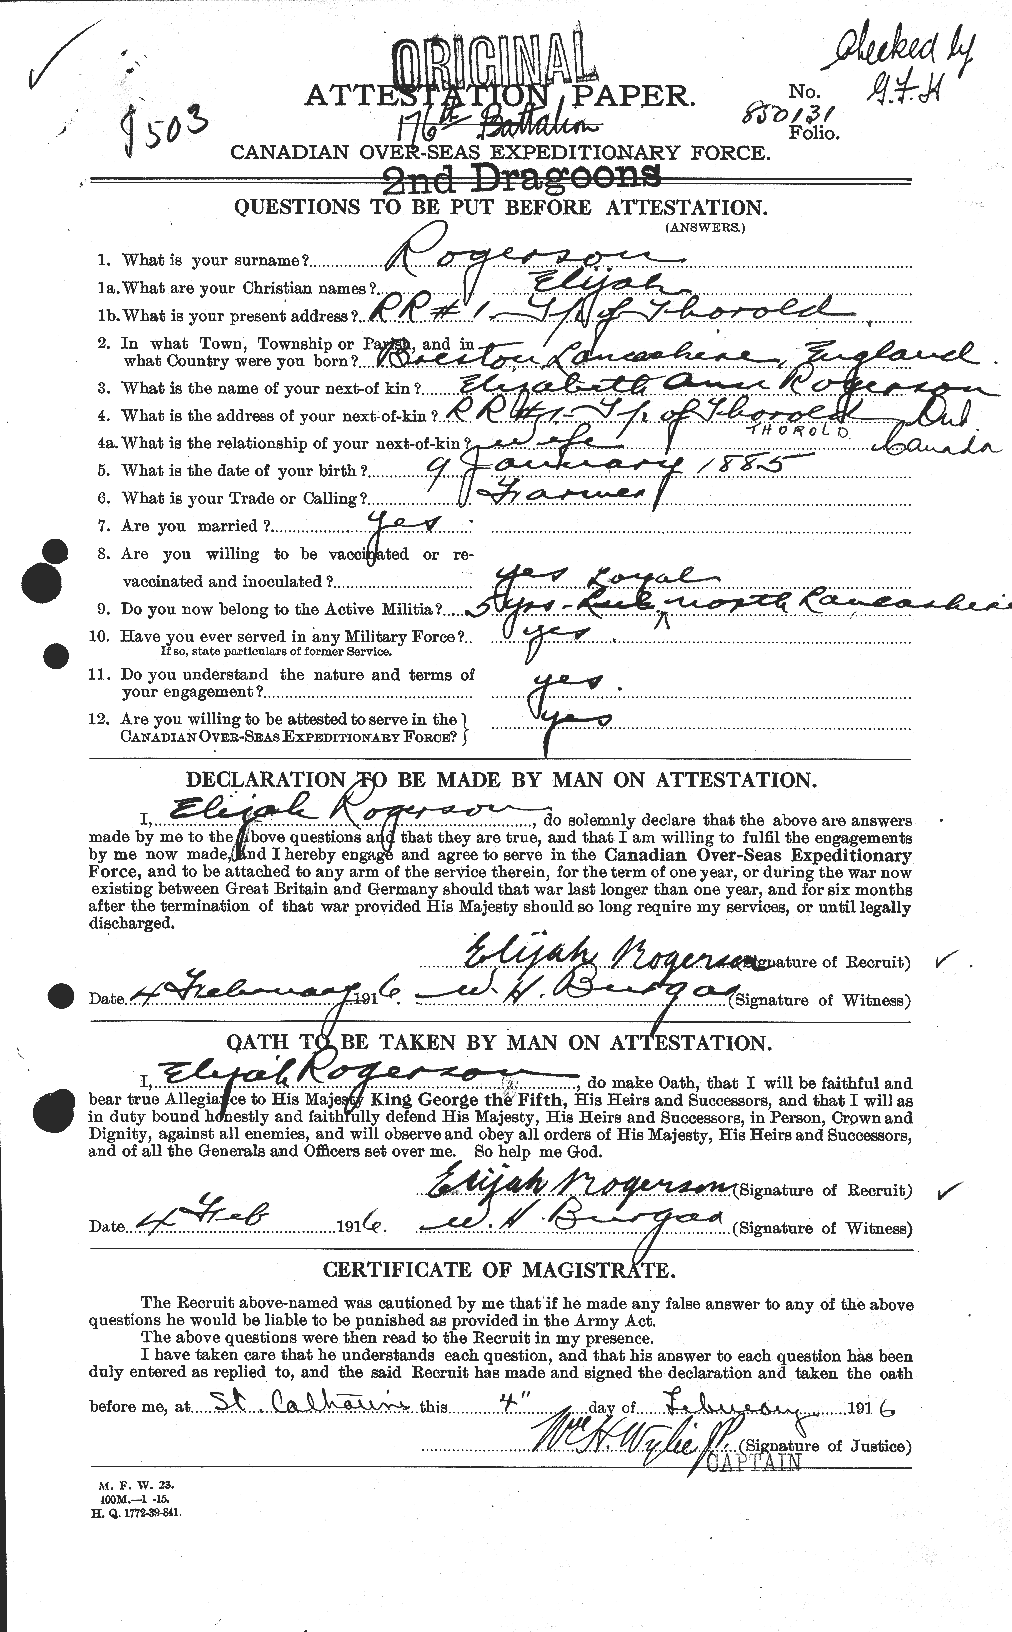 ORIGINAL
Checked by
G.F.H
ATTESTATION PAPER.
No.
850131
Folio.
503
176th Battalion
CANADIAN OVER-SEAS EXPEDITIONARY FORCE.
2nd Dragoons
QUESTIONS TO BE PUT BEFORE ATTESTATION.
(ANSWERS.)
1. What is your surname? Rogerson
1a. What are your Christian names? Elijah
1b. What is your present address? RR#1 - Tp of Thorold
2. In what Town, Township or Parish, and in
what Country were you born? Preston, Lancashire, England.
3. What is the name of your next-of kin? Elizabeth Ann Rogerson
4. What is the address of your next-of-kin? RR#1- Tp. of Thorold Ont
THOROLD Canada
4a. What is the relationship of your next-of-kin? wife
5. What is the date of your birth? 9 January 1885
6. What is your Trade or Calling? Farmer
7. Are you married? yes
8. Are you willing to be vaccinated or re-
vaccinated and inoculated? yes Loyal
9. Do you now belong to the Active Militia? 5 yrs - north Lancashire
10. Have you ever served in any Military Force? yes.
If so, state particulars of former Service.
11. Do you understand the nature and terms of
your engagement? yes.
12. Are you willing to be attested to serve in the
CANADIAN OVER-SEAS EXPEDITIONARY FORCE? yes
DECLARATION TO BE MADE BY MAN ON ATTESTATION.
I, Elijah Rogerson, do solemnly declare that the above are answers
made by me to the above questions and that they are true, and that I am willing to fulfil the engagements
by me now made, and I hereby engage and agree to serve in the Canadian Over-Seas Expeditionary
Force, and to be attached to any arm of the service therein, for the term of one year, or during the war now
existing between Great Britain and Germany should that war last longer than one year, and for six months
after the termination of that war provided His Majesty should so long require my services, or until legally
discharged.
Elijah Rogerson (Signature of Recruit)
Date 4 February 1916. W. H. Burgar (Signature of Witness)
OATH TO BE TAKEN BY MAN ON ATTESTATION.
I, Elijah Rogerson, do make Oath, that I will be faithful and
bear true Allegiance to His Majesty King George the Fifth, His Heirs and Successors, and that I will as
in duty bound honestly and faithfully defend His Majesty, His Heirs and Successors, in Person, Crown and
Dignity, against all enemies, and will observe and obey all orders of His Majesty, His Heirs and Successors,
and of all the Generals and Officers set over me. So help me God.
Elijah Rogerson (Signature of Recruit)
Date 4 Feb 1916. W. H. Burgar (Signature of Witness)
CERTIFICATE OF MAGISTRATE.
The Recruit above-named was cautioned by me that if he made any false answer to any of the above
questions he would be liable to be punished as provided in the Army Act.
The above questions were then read to the Recruit in my presence.
I have taken care that he understands each question, and that his answer to each question has been
duly entered as replied to, and the said Recruit has made and signed the declaration and taken the oath
before me, at St. Catharines this 4" day of February 1916
Wm H. Wylie JP. (Signature of Justice)
CAPTAIN
M. F. W. 23.
100M.—1 -15.
H. Q. 1772-39-841.